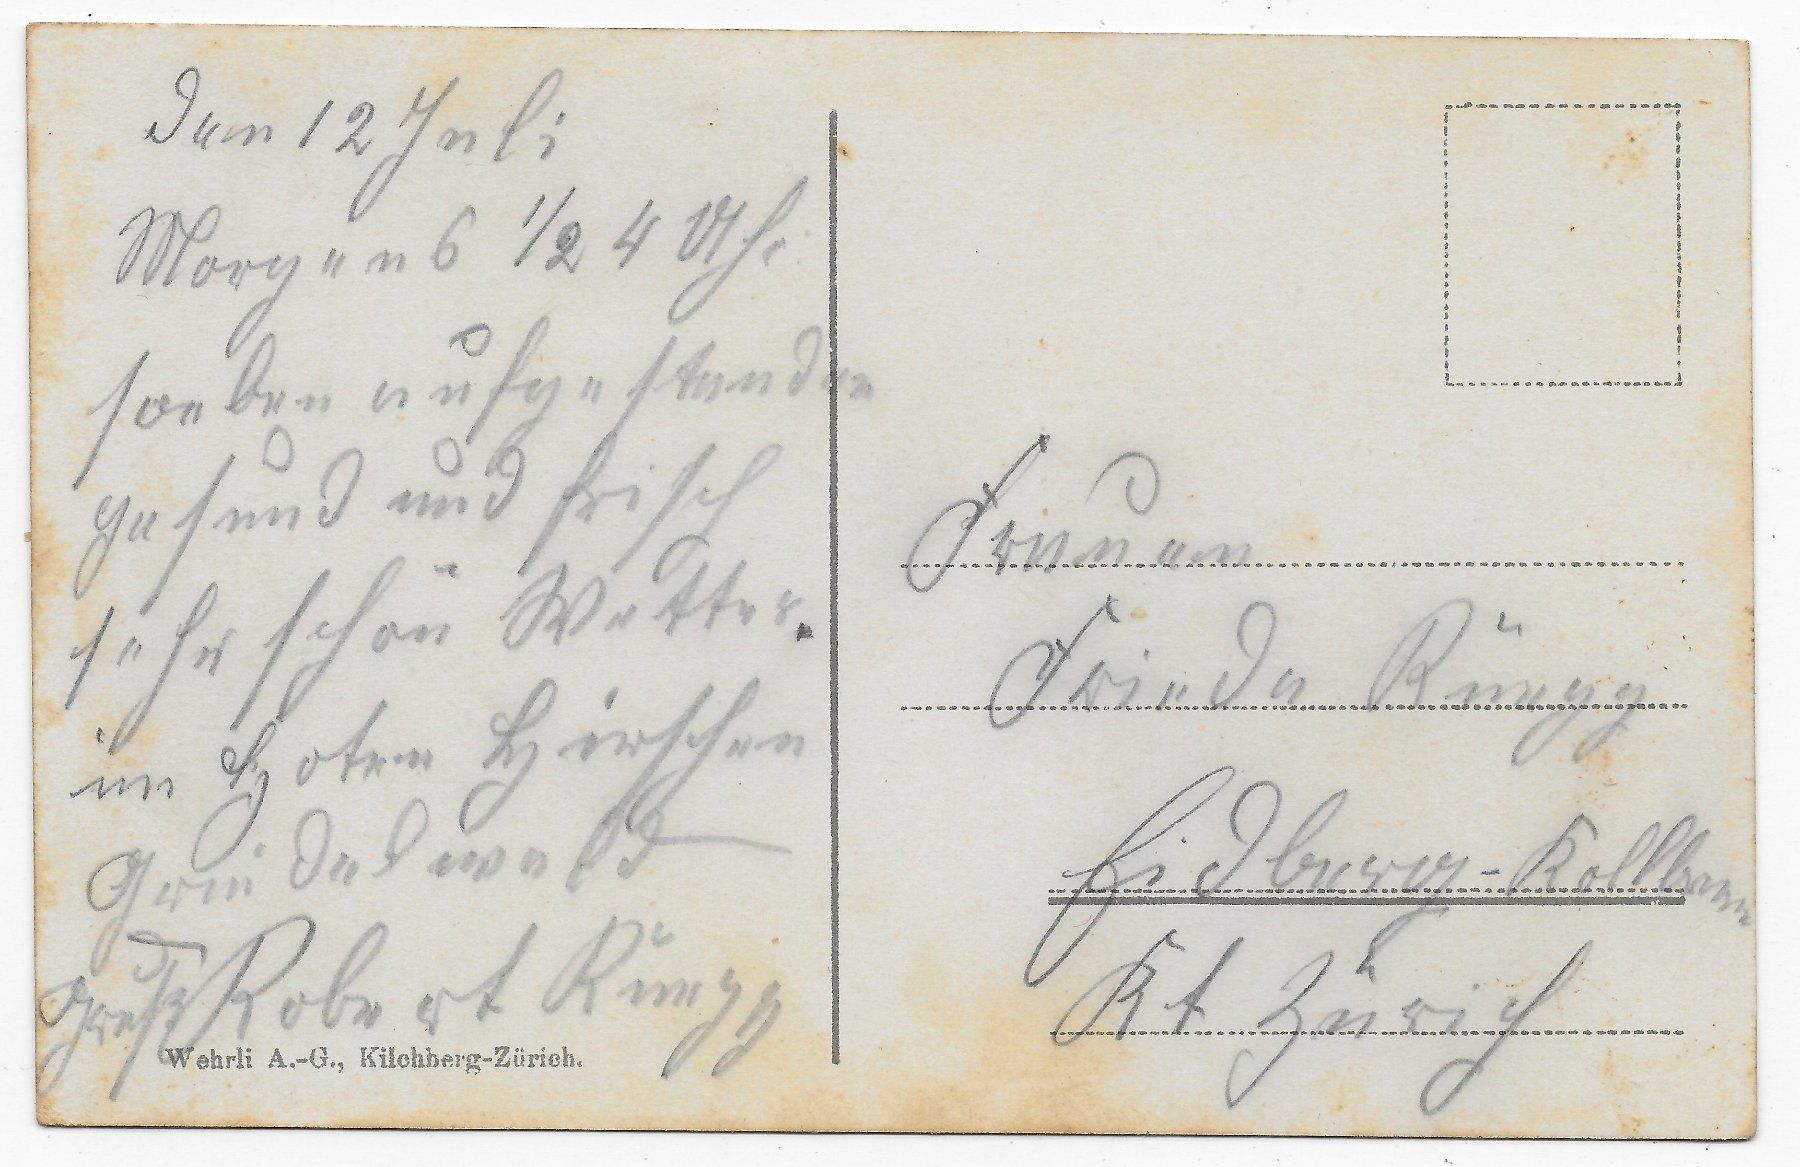 Den 12 Juli
Morgens 1/2 4 Uhr
soeben aufgestanden
gesund und frisch
sehr schön Wetter.
im Hoten Hirschen
Grindelwald
Gruß Robert Rüegg
Wehrli A.-G., Kilchberg-Zürich.
Frauen
Frieda Rüegg
Eidberg-Kollbrunn
Kt Zürich